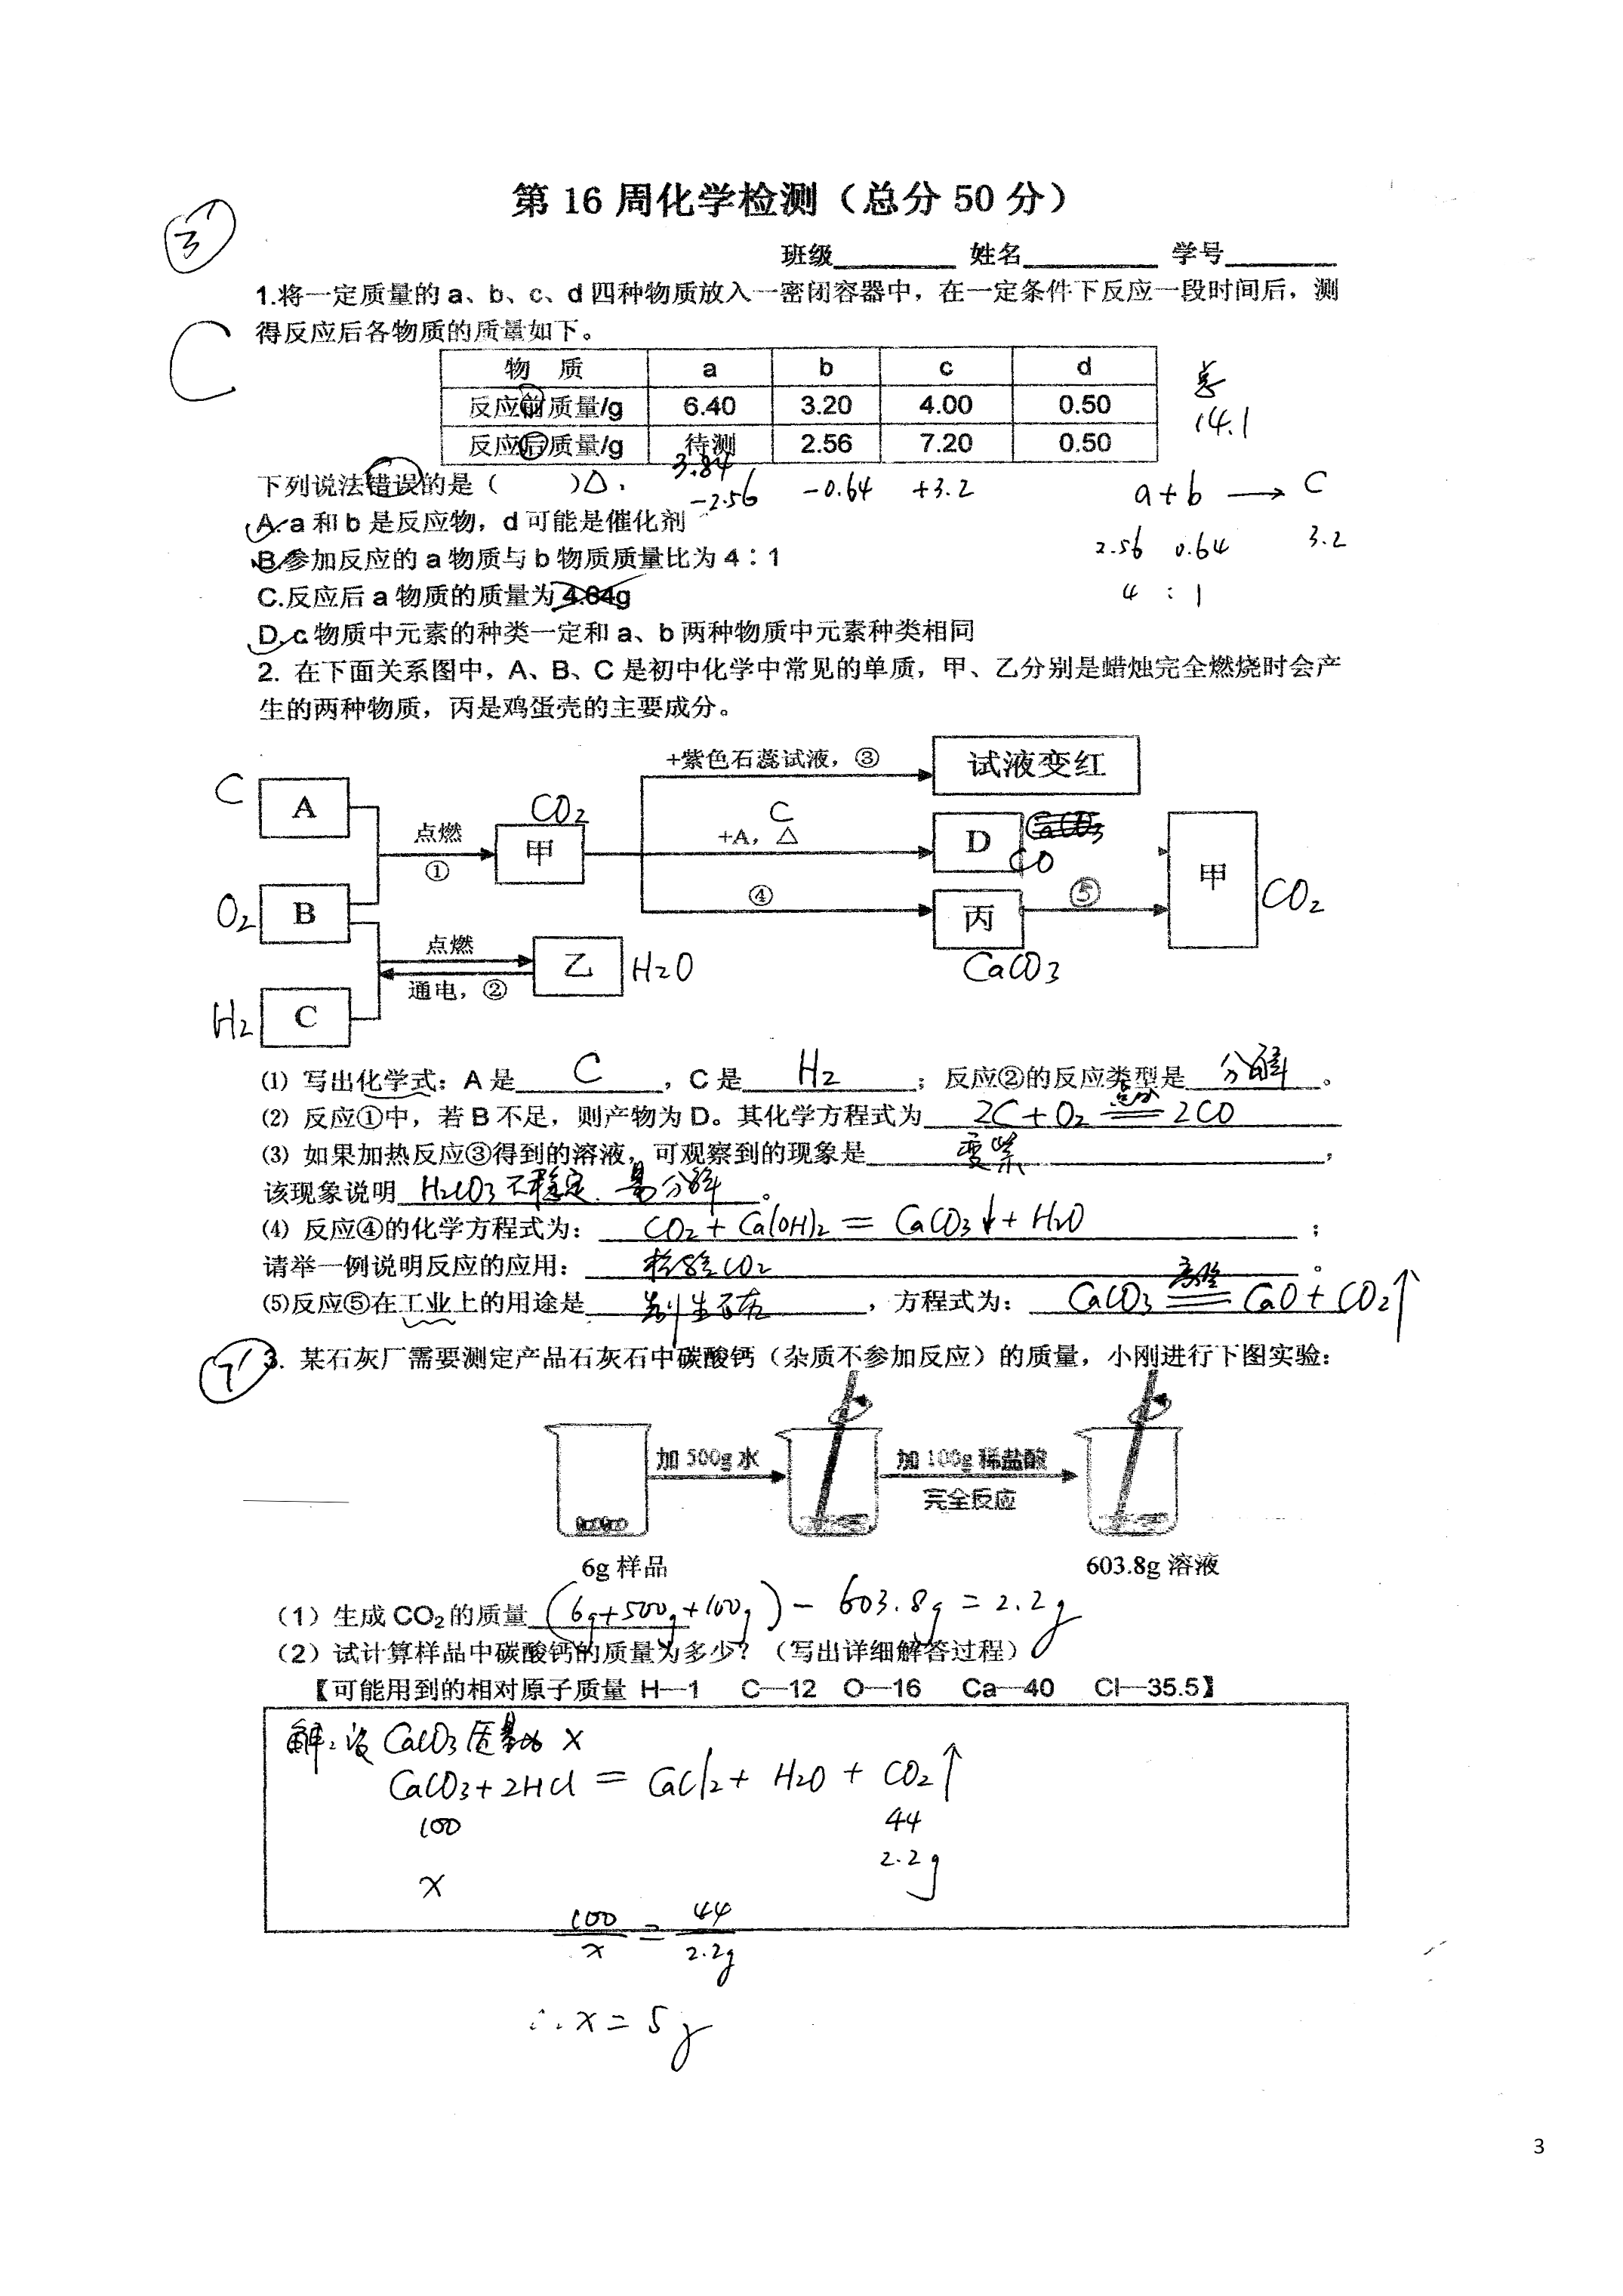 第 16 周化学检测（总分 50 分）
③
班级________ 姓名________ 学号________
1.将一定质量的 a、b、c、d 四种物质放入一密闭容器中，在一定条件下反应一段时间后，测
得反应后各物质的质量如下。
C
物 质 a b c d
反应前质量/g 6.40 3.20 4.00 0.50
反应后质量/g 待测 2.56 7.20 0.50
总
14.1
3.84
下列说法错误的是（ ）△.
-2.56 -0.64 +3.2
a+b → C
A. a 和 b 是反应物，d 可能是催化剂
2.56 0.64 3.2
B.参加反应的 a 物质与 b 物质质量比为 4：1
C.反应后 a 物质的质量为 4.64g
4 : 1
D. c 物质中元素的种类一定和 a、b 两种物质中元素种类相同
2. 在下面关系图中，A、B、C 是初中化学中常见的单质，甲、乙分别是蜡烛完全燃烧时会产
生的两种物质，丙是鸡蛋壳的主要成分。
+紫色石蕊试液，③ 试液变红
C A
点燃
①
CO₂
甲
C
+A，△
D
CO
甲
CO₂
④
丙
⑤
CaCO₃
O₂ B
点燃
通电，②
乙 H₂O
H₂ C
⑴ 写出化学式：A 是 C ，C 是 H₂ ；反应②的反应类型是 分解 。
⑵ 反应①中，若 B 不足，则产物为 D。其化学方程式为 2C+O₂ 点燃═ 2CO
⑶ 如果加热反应③得到的溶液，可观察到的现象是 变紫 ，
该现象说明 H₂CO₃不稳定.易分解 。
⑷ 反应④的化学方程式为： CO₂+Ca(OH)₂ = CaCO₃↓+H₂O ；
请举一例说明反应的应用： 检验CO₂ 。
⑸反应⑤在工业上的用途是 制生石灰 ，方程式为： CaCO₃ 高温═ CaO+CO₂↑
⑦
3. 某石灰厂需要测定产品石灰石中碳酸钙（杂质不参加反应）的质量，小刚进行下图实验：
加 500g 水
加 100g 稀盐酸
完全反应
6g 样品
603.8g 溶液
（1）生成 CO₂ 的质量 (6g+500g+100g)-603.8g=2.2g
（2）试计算样品中碳酸钙的质量为多少？（写出详细解答过程）
【可能用到的相对原子质量 H—1 C—12 O—16 Ca—40 Cl—35.5】
解：设CaCO₃质量为 x
CaCO₃+2HCl = CaCl₂+ H₂O + CO₂↑
100 44
x 2.2g
100/x = 44/2.2g
∴x=5g
3